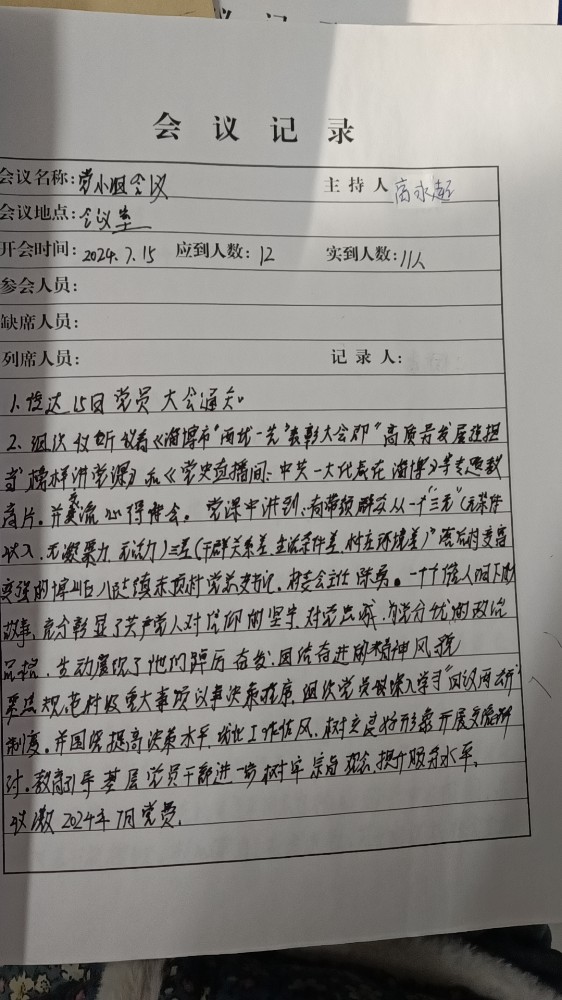 会议记录
会议名称:党小组会议 主持人 高永超
会议地点:会议室
开会时间:2024.7.15 应到人数:12 实到人数:11人
参会人员:
缺席人员:
列席人员: 记录人:
1.传达15日党员大会通知
2.组织收听收看《淄博市"两优一先"表彰大会即"高质量发展我担
当"榜样讲党课》和《党史直播间:中共一大代表在淄博》等专题教
育片。并交流心得体会。党课中讲到:有带领群众从一个"三无"(无集体
收入、无凝聚力、无活力)三差(干群关系差、生活条件差、村庄环境差)"落后村变富
变强的博山区八陡镇 村党总支书记、村委会主任 陈 。一个个感人 的
故事,充分彰显了共产党人对信仰的坚守,对党忠诚, 的政治
品格,生动展现了他们踔厉奋发,团结奋进的精神风貌
3. 规范村级重大事项议事决策程序,组织党员 深入学习"四议两公开"
制度。并围绕提高决策水平,优化工作作风,树立良好形象开展交流研
讨。教育引导基层党员干部进一步树牢宗旨观念,提升服务水平。
收缴2024年7月党费。